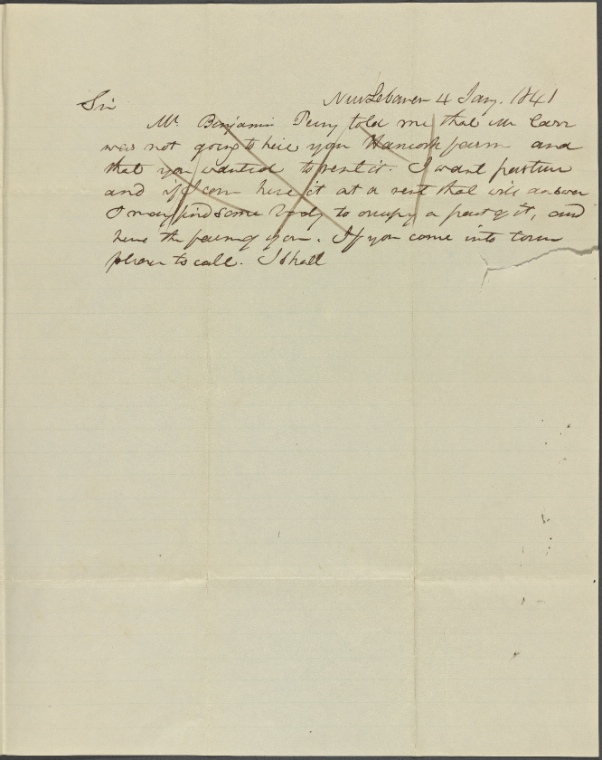 New Lebanon 4 Jany. 1841
Sir
Mr. Benjamin Perry told me that Mr Carr
was not going to hire your Hancock farm and
that you wanted to rent it. I want pasture
and if I can hire it at a rent that will answer
I may find some body to occupy a part of it, and
hire the farm of you. If you come into town
please to call. I shall